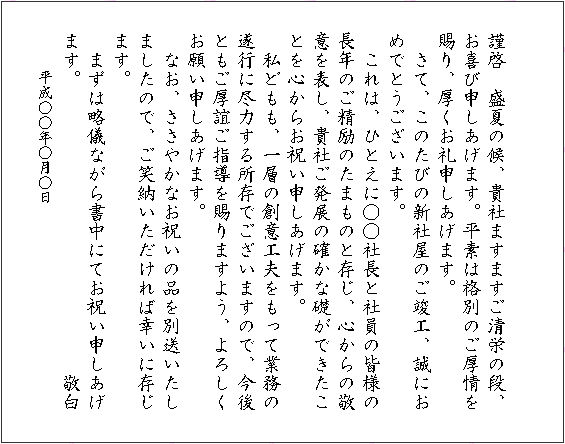 謹啓　盛夏の候、貴社ますますご清栄の段、
お喜び申しあげます。平素は格別のご厚情を
賜り、厚くお礼申しあげます。
さて、このたびの新社屋のご竣工、誠にお
めでとうございます。
これは、ひとえに〇〇社長と社員の皆様の
長年のご精励のたまものと存じ、心からの敬
意を表し、貴社ご発展の確かな礎ができたこ
とを心からお祝い申しあげます。
私どもも、一層の創意工夫をもって業務の
遂行に尽力する所存でございますので、今後
ともご厚誼ご指導を賜りますよう、よろしく
お願い申しあげます。
なお、ささやかなお祝いの品を別送いたし
ましたので、ご笑納いただければ幸いに存じ
ます。
まずは略儀ながら書中にてお祝い申しあげ
ます。　敬白
平成〇〇年〇月〇日